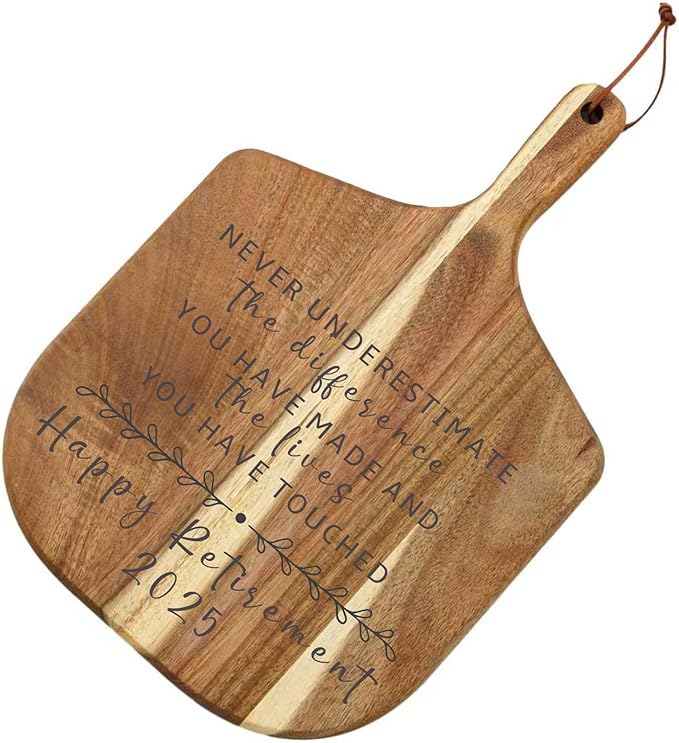 NEVER UNDERESTIMATE
the difference
YOU HAVE MADE AND
the lives
YOU HAVE TOUCHED
Happy Retirement
2025